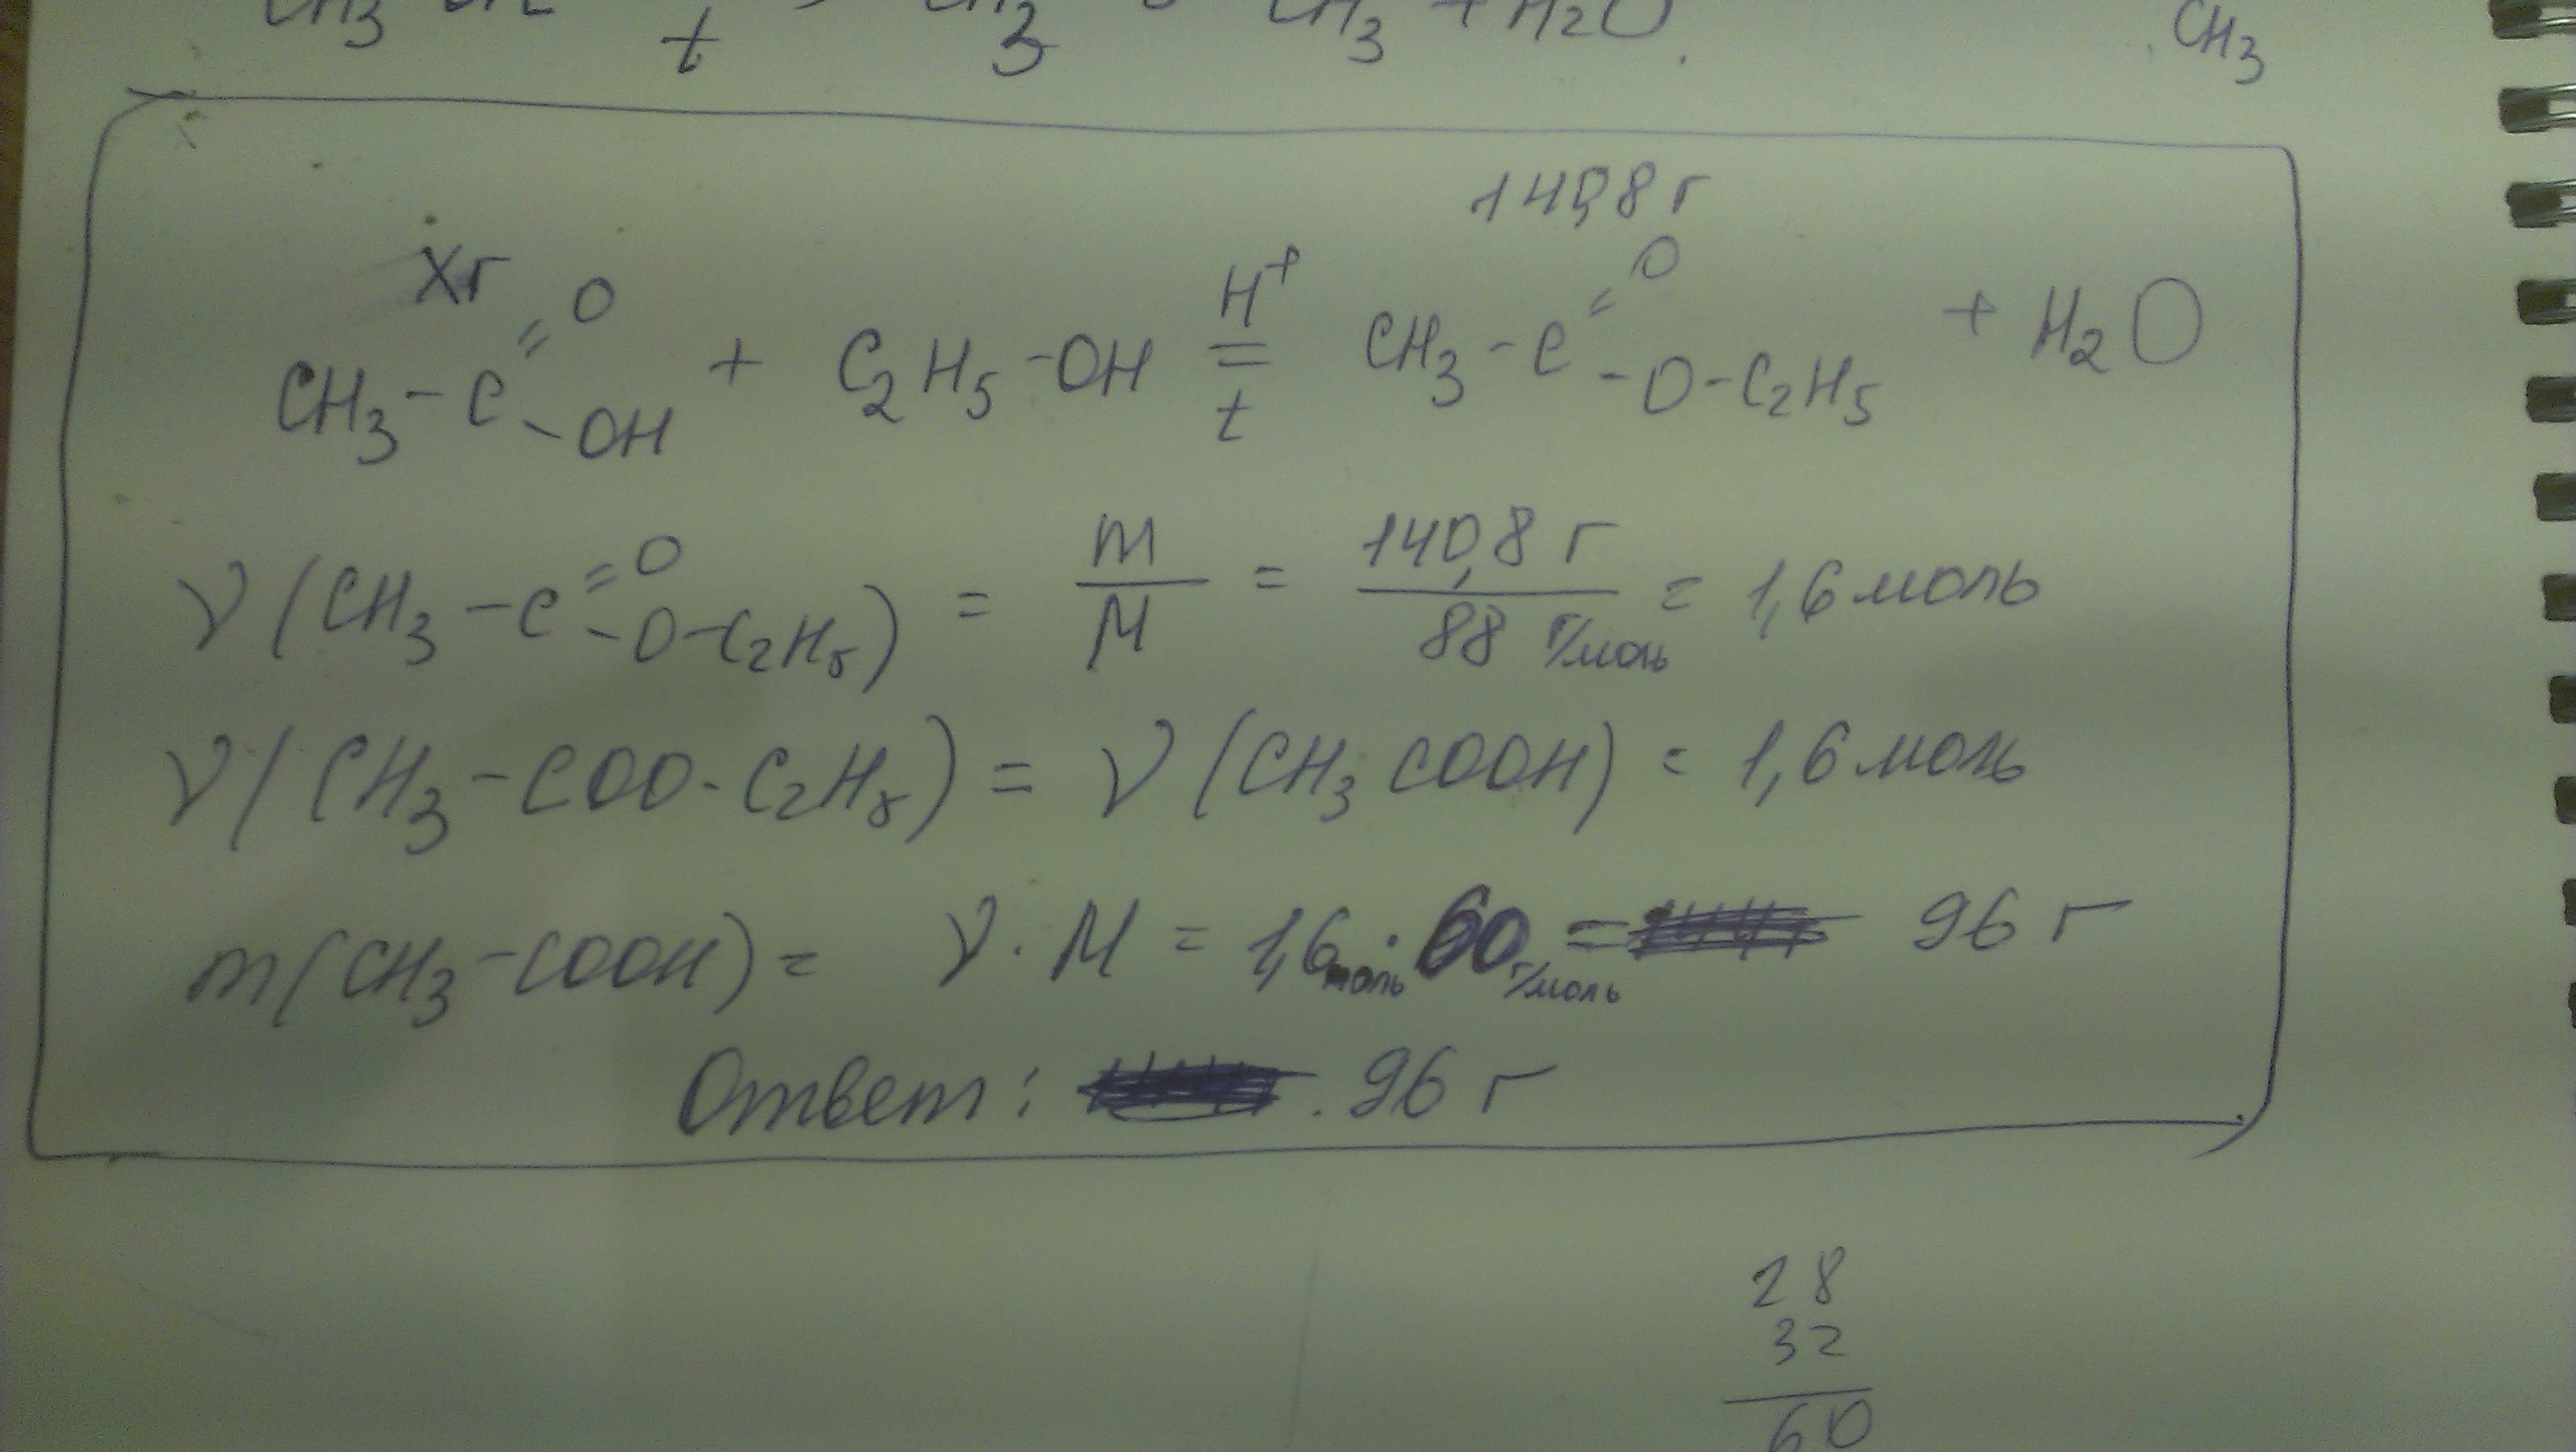 CH3 t CH3 CH3 + H2O. CH3
140,8 г
Xг
CH3 - C =O - OH + C2H5 - OH H+ = t CH3 - C =O - O - C2H5 + H2O
ν (CH3 - C =O - O - C2H5) = m/M = 140,8 г / 88 г/моль = 1,6 моль
ν (CH3 - COO - C2H5) = ν (CH3COOH) = 1,6 моль
m (CH3 - COOH) = ν · M = 1,6 моль · 60 г/моль = 96 г
Ответ: 96 г
28
32
60